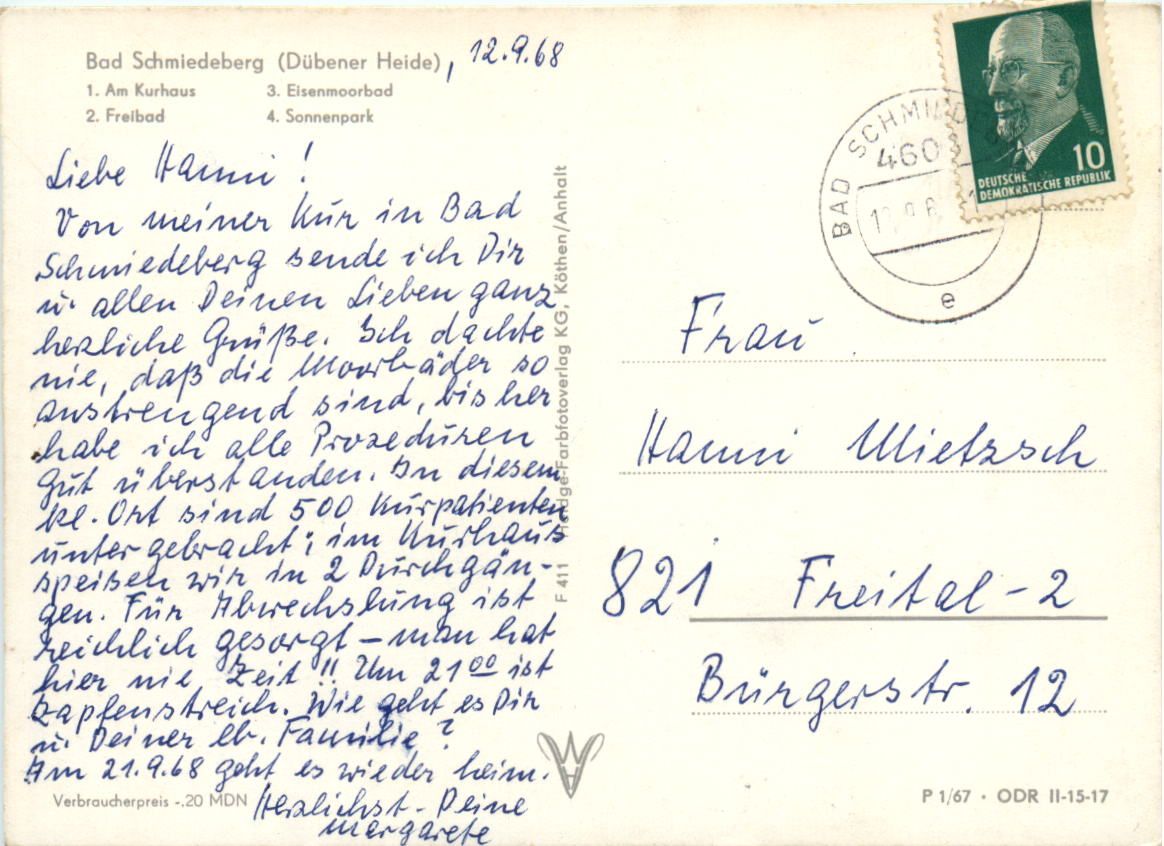 Bad Schmiedeberg (Dübener Heide), 12.9.68
1. Am Kurhaus 3. Eisenmoorbad
2. Freibad 4. Sonnenpark
Liebe Hanni!
Von meiner Kur in Bad
Schmiedeberg sende ich Dir
u. allen Deinen Lieben ganz
herzliche Grüße. Ich dachte
nie, daß die Moorbäder so
anstrengend sind, bisher
habe ich alle Prozeduren
gut überstanden. In diesem
kl. Ort sind 500 Kurpatienten
untergebracht; im Kurhaus
speisen wir in 2 Durchgän-
gen. Für Abwechslung ist
reichlich gesorgt – man hat
hier nie Zeit!! Um 21 00 ist
Zapfenstreich. Wie geht es Dir
u. Deiner lb. Familie?
Am 21.9.68 geht es wieder heim.
Herzlichst – Deine
Margarete
Verbraucherpreis -.20 MDN
F 411 -Farbfotoverlag KG, Köthen/Anhalt
10
DEUTSCHE
DEMOKRATISCHE REPUBLIK
BAD SCHMIED
460
e
Frau
Hanni Mietzsch
821 Freital-2
Bürgerstr. 12
P 1/67 · ODR II-15-17